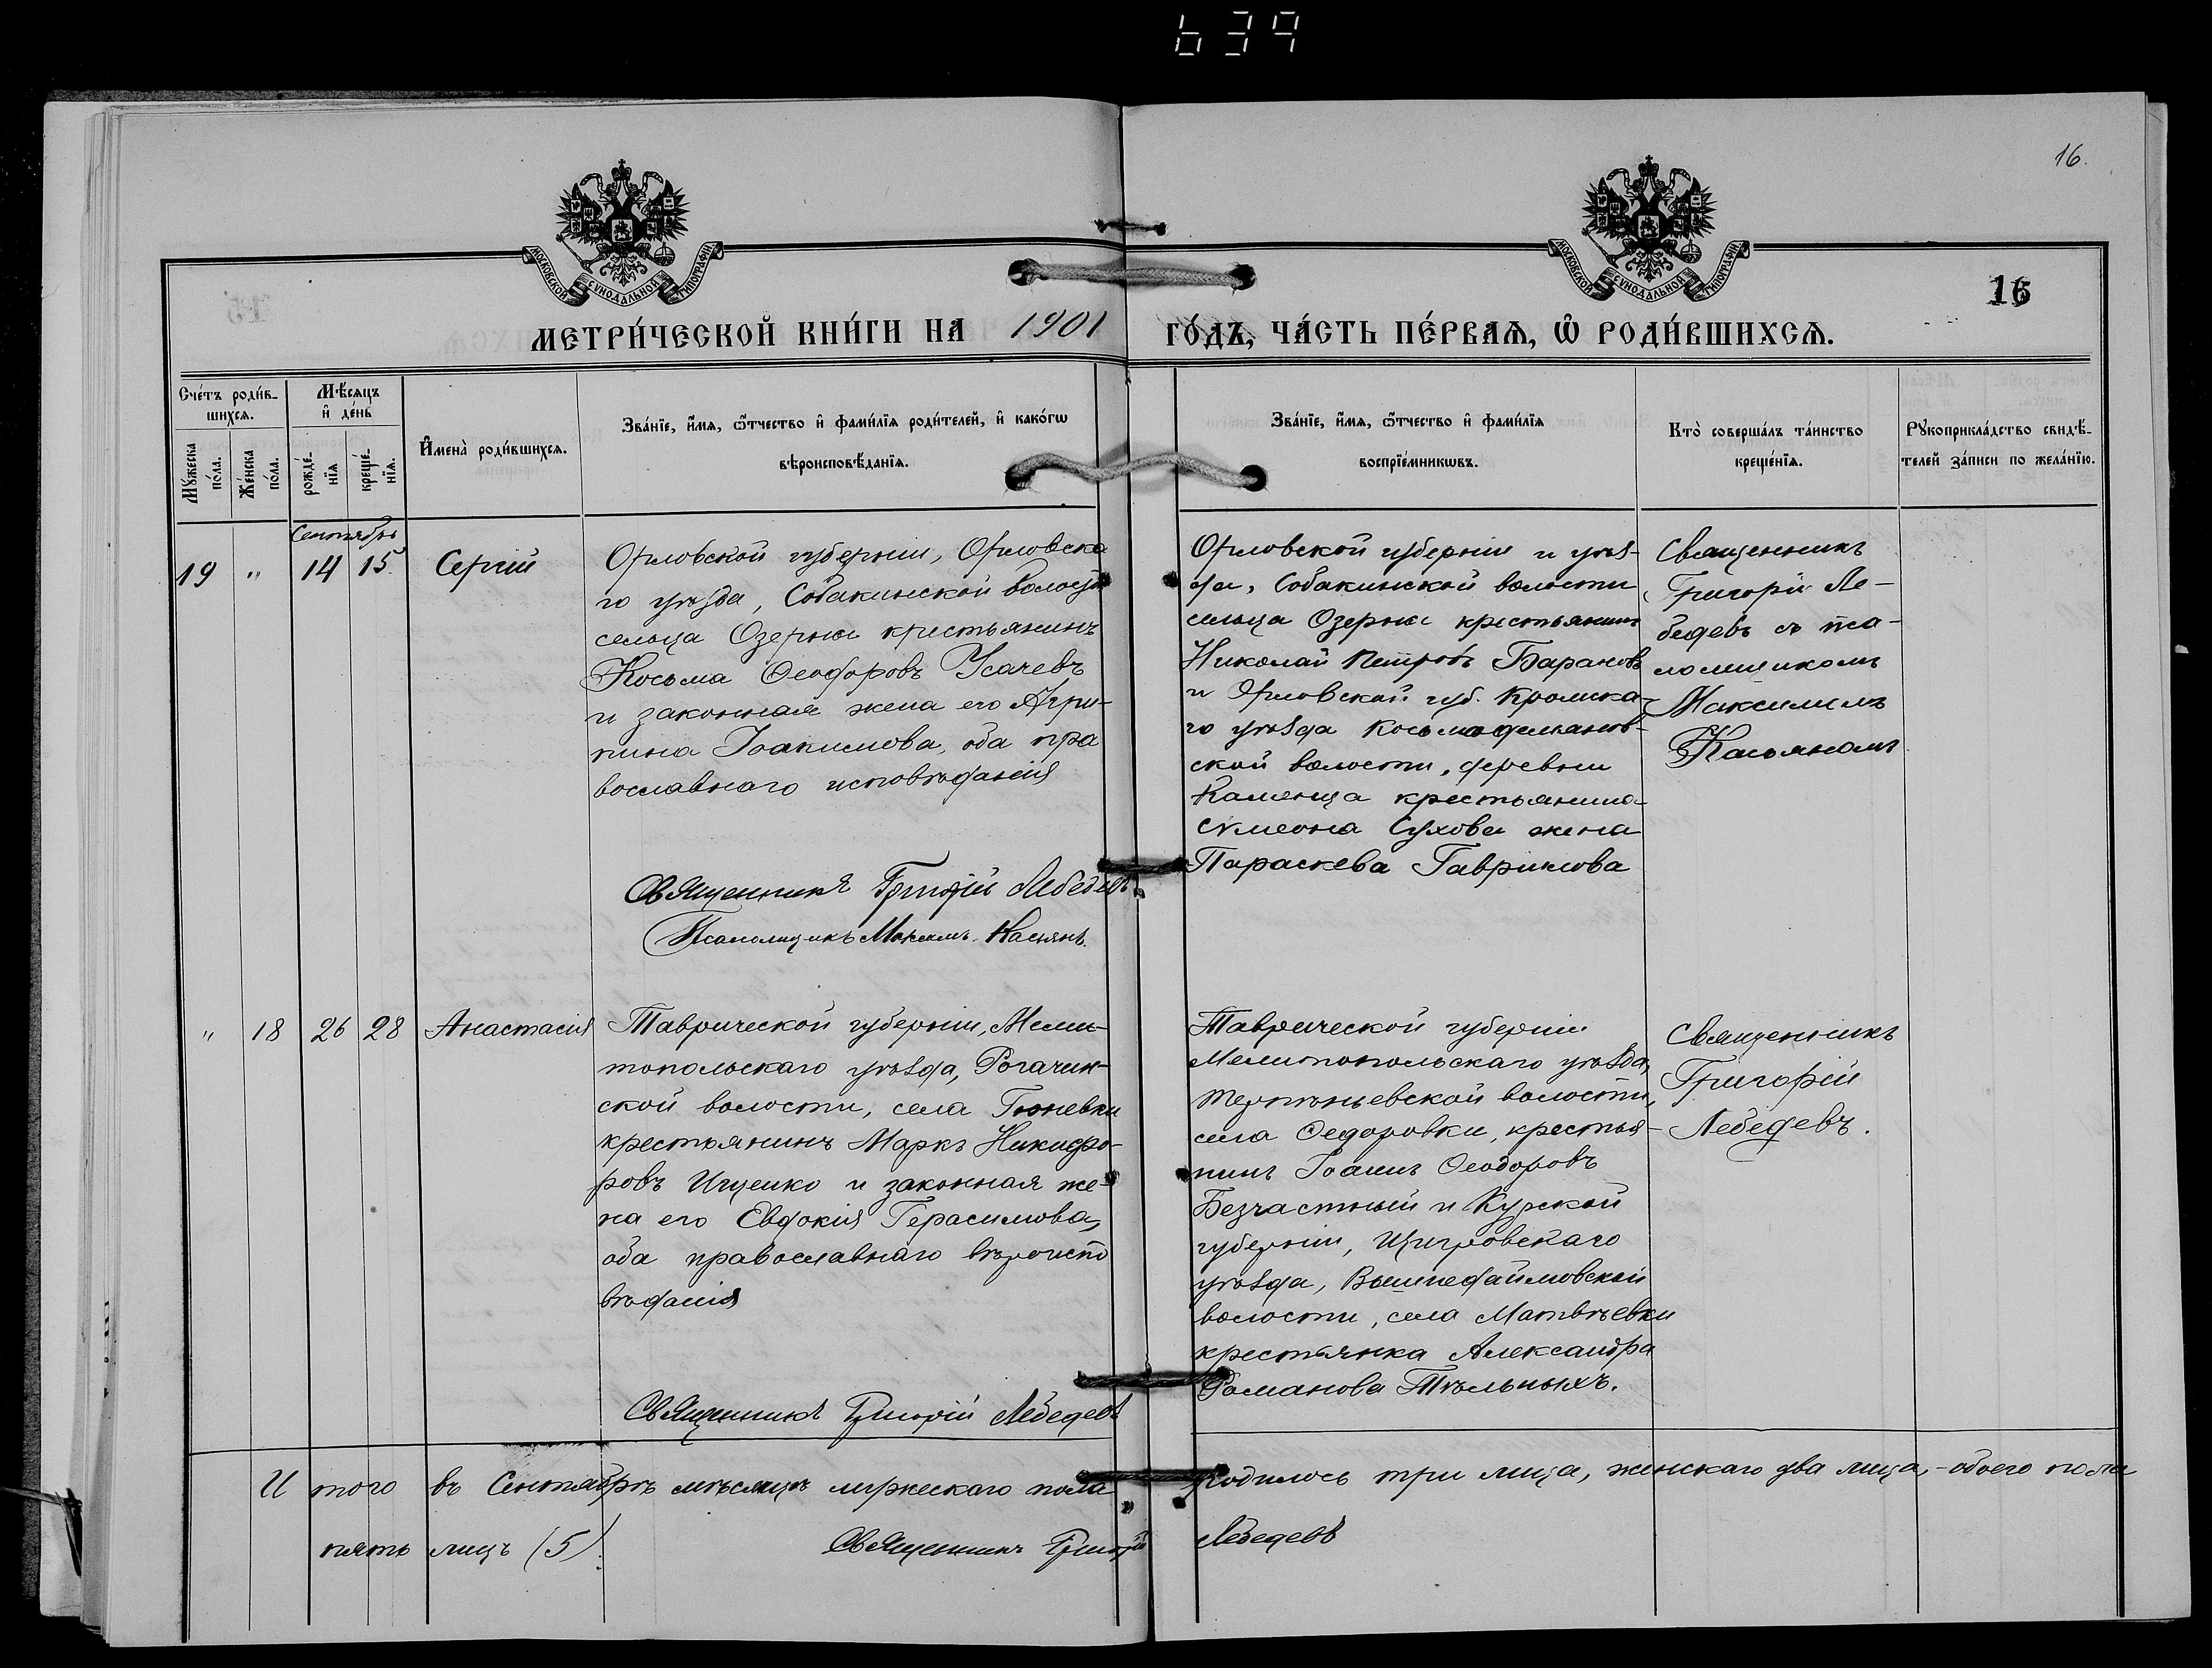 639
16.
МОСКОВСКОЙ СУНОДАЛЬНОЙ ТИПОГРАФІИ
МОСКОВСКОЙ СУНОДАЛЬНОЙ ТИПОГРАФІИ
16
МЕТРИ́ЧЕСКОЙ КНИ́ГИ НА 1901 ГО́ДЪ, ЧА́СТЬ ПЕ́РВАѦ, Ѽ РОДИ́ВШИХСѦ.
Сче́тъ роди́в-
шихсѧ.
Мꙋжеска
по́ла.
Же́нска
по́ла.
Мѣ́сѧцъ
и҆ де́нь
рожде́-
нїѧ
креще́-
нїѧ.
И҆мена̀ роди́вшихсѧ.
Зва́нїе, и҆́мѧ, ѻ҆́тчество и҆ фами́лїѧ роди́телей, и҆ како́гѡ
вѣроисповѣ́данїѧ.
Зва́нїе, и҆́мѧ, ѻ҆́тчество и҆ фами́лїѧ
воспрїе́мникѡвъ.
Кто̀ соверша́лъ та́инство
креще́нїѧ.
Рꙋкоприкла́дство свидѣ́-
телей за́писи по жела́нїю.
Сентябрь
19 " 14 15 Сергій
Орловской губерніи, Орловска
го уѣзда, Собакинской волости
сельца Озерна крестьянинъ
Косьма Ѳеодоровъ Усачевъ
и законная жена его Агри-
пина Іоакимова, оба пра
вославнаго исповѣданія
Священникъ Григорій Лебедевъ
Псаломщикъ Максимъ Касьянъ.
Орловской губерніи и уѣз-
да, Собакинской волости
сельца Озерна крестьянинъ
Николай Петровъ Барановъ
и Орловской губ. Кромска-
го уѣзда Косьмодемьянов-
ской волости, деревни
Каменца крестьянина
Сѵмеона Сухова жена
Параскева Гаврилова
Священникъ
Григорій Ле-
бедевъ съ пса-
ломщикомъ
Максимомъ
Касьяномъ
" 18 26 28 Анастасія
Таврической губерніи, Мели-
топольскаго уѣзда, Рогачин-
ской волости, села Гюневки
крестьянинъ Маркъ Никифо-
ровъ Ищенко и законная же-
на его Евдокія Герасимова,
оба православнаго вѣроиспо
вѣданія
Священникъ Григорій Лебедевъ
Таврической губерніи
Мелитопольскаго уѣзда,
Терпѣньевской волости,
села Ѳедоровки, крестья-
нинъ Іоаннъ Ѳеодоровъ
Безчастный и Курской
губерніи, Щигровскаго
уѣзда, волости, села Матвѣевки
крестьянка Александра
Романова
Священникъ
Григорій
Лебедевъ.
Итого въ Сентябрѣ мѣсяцѣ мужескаго пола родилось три лица, женскаго два лица, - обоего пола
пять лицъ (5). Священникъ Григорій Лебедевъ